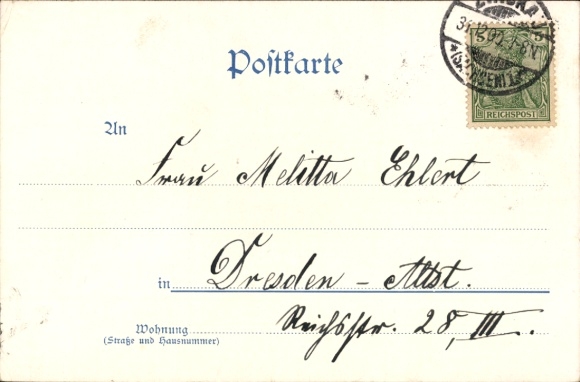 Postkarte
5 5
REICHSPOST
An
Frau Melitta Ehlert
in Dresden – Altst.
Wohnung
(Straße und Hausnummer)
Reichsstr. 28, III.